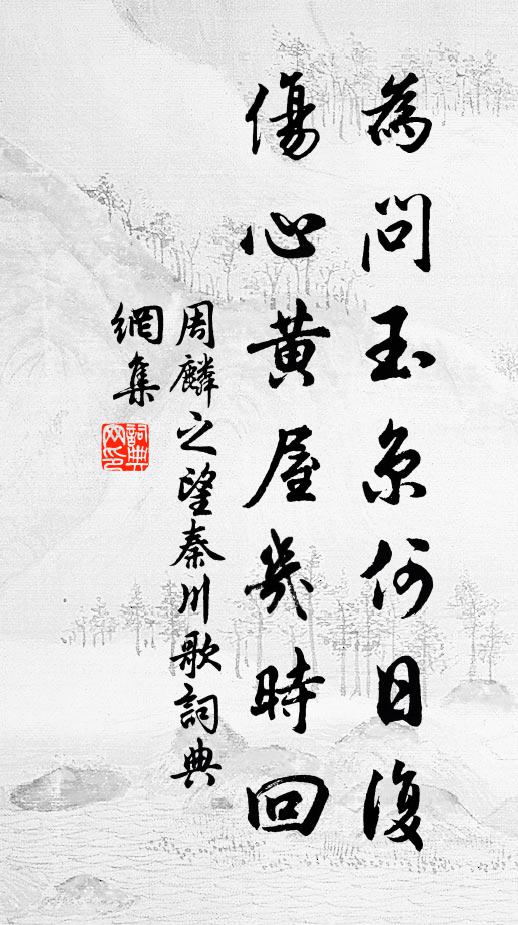 為問玉京何日復
傷心黃屋幾時回
周麟之望秦川歌詞典
網集
詞典
网印